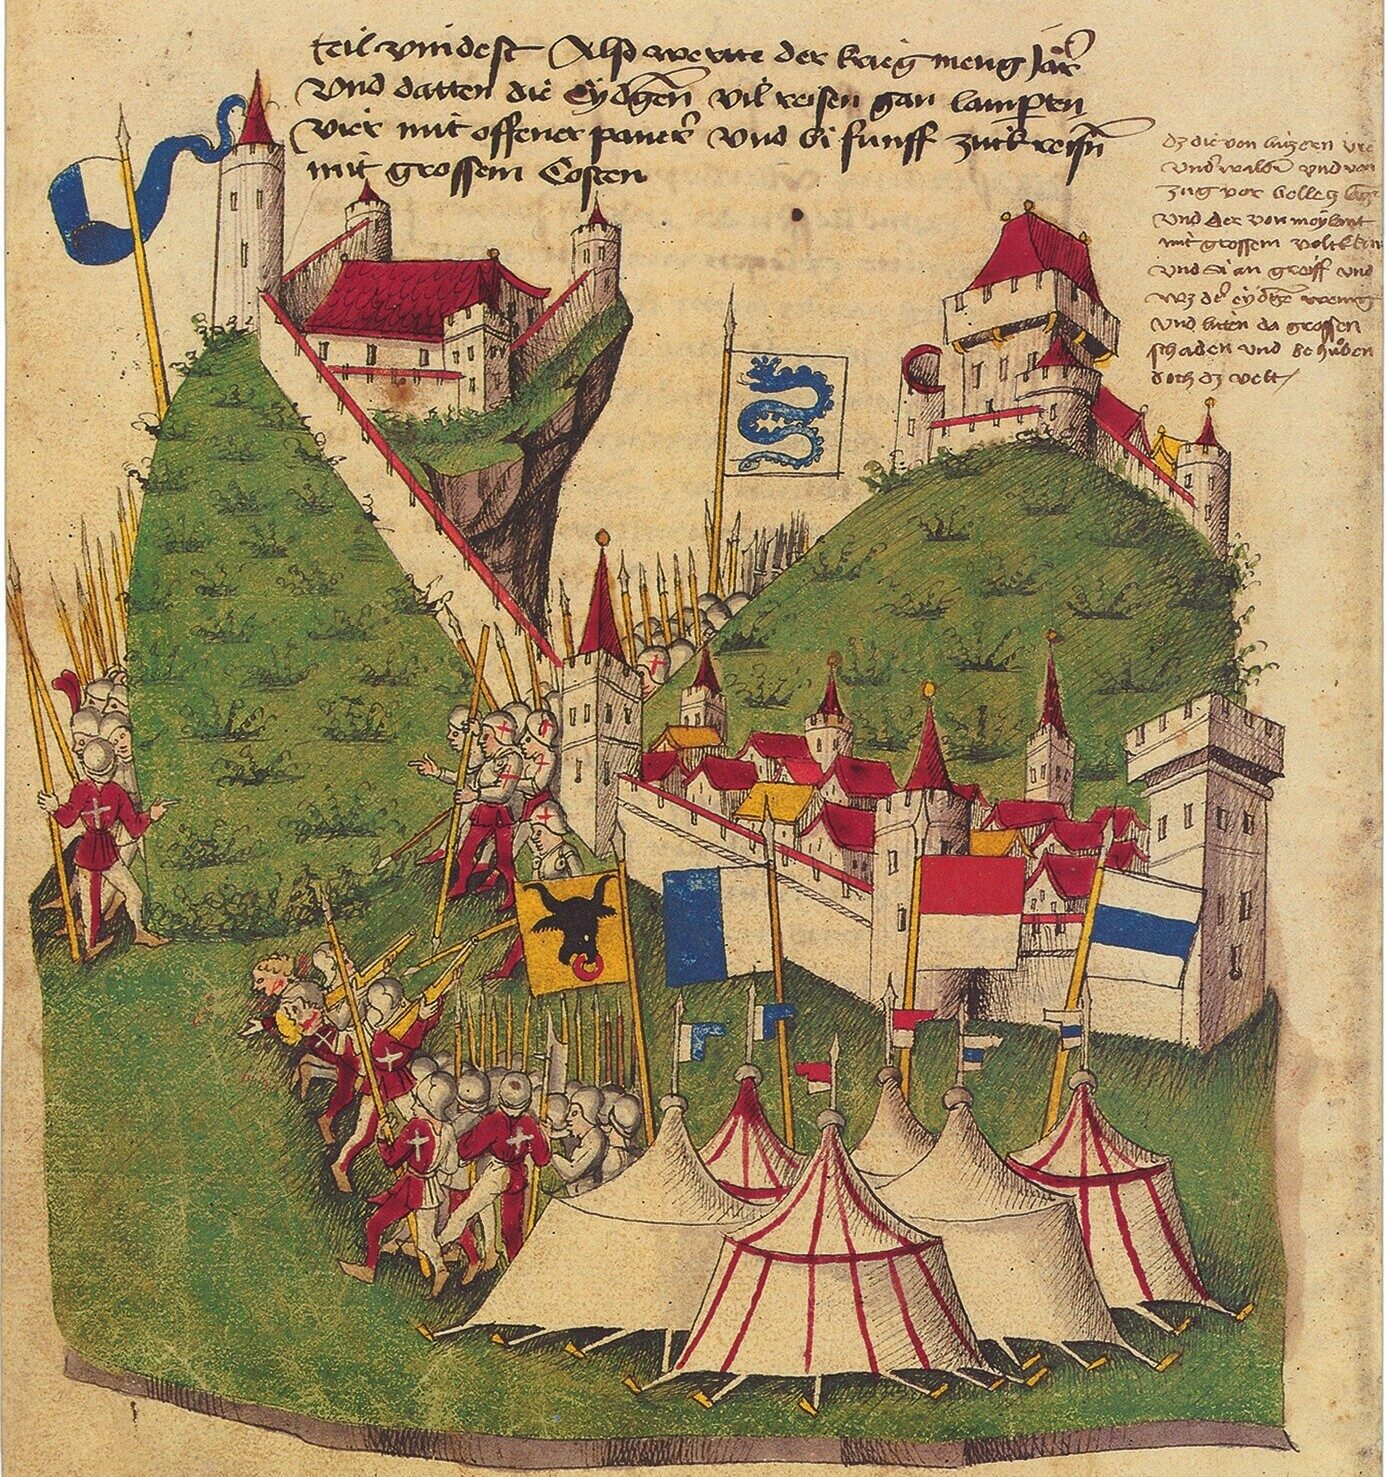 teil vnd est Also werete der krieg meng Jar
Vnd datten die Eydgen vil reisen gan lamparten
vier mit offener paner vnd bi funff zuck reisn
mit grossem Costen
dz die von lutzern vre
vnderwalden vnd von
zug vor belletz
vnd der von meylant
mit grossem volck
vnd si an greiff vnd
wz der eydgn wenig
vnd liten da grossen
schaden vnd behuben
doch dz velt